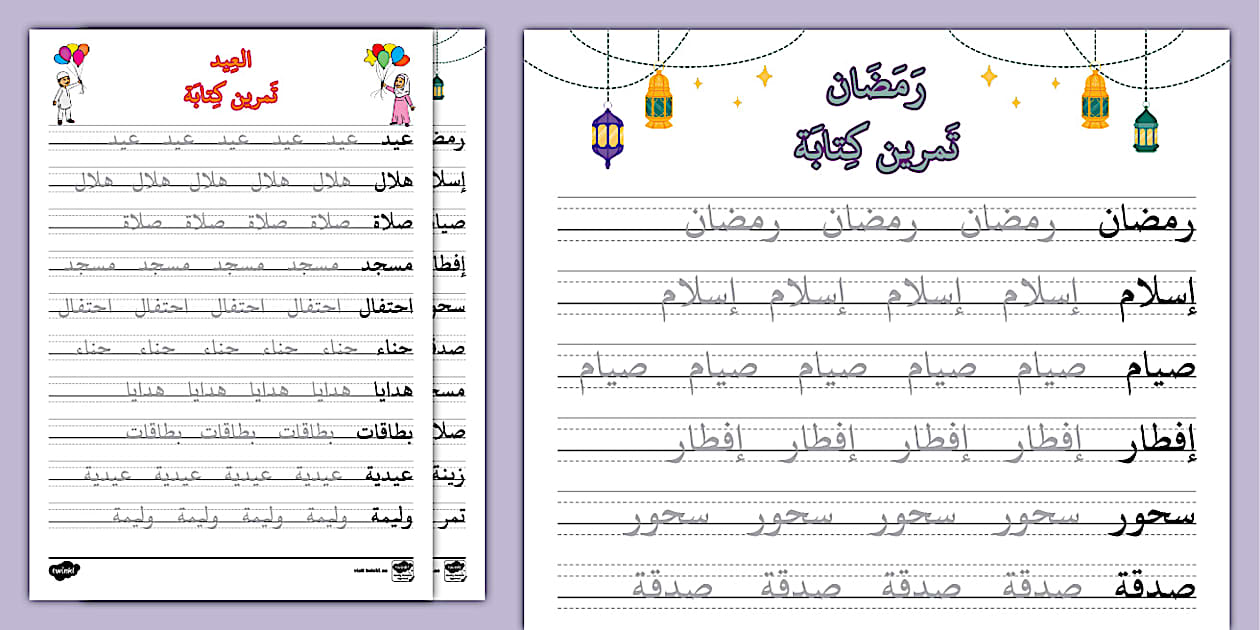 العِيد
تَمرين كِتابَة
عيد عيد عيد عيد عيد عيد
هلال هلال هلال هلال هلال هلال
صلاة صلاة صلاة صلاة صلاة
مسجد مسجد مسجد مسجد مسجد
احتفال احتفال احتفال احتفال احتفال
حناء حناء حناء حناء حناء حناء
هدايا هدايا هدايا هدايا هدايا
بطاقات بطاقات بطاقات بطاقات
عيدية عيدية عيدية عيدية عيدية
وليمة وليمة وليمة وليمة وليمة
twinkl
زينة
تمر
رَمَضَان
تَمرين كِتابَة
رمضان رمضان رمضان رمضان
إسلام إسلام إسلام إسلام إسلام
صيام صيام صيام صيام صيام صيام
إفطار إفطار إفطار إفطار إفطار
سحور سحور سحور سحور سحور
صدقة صدقة صدقة صدقة صدقة